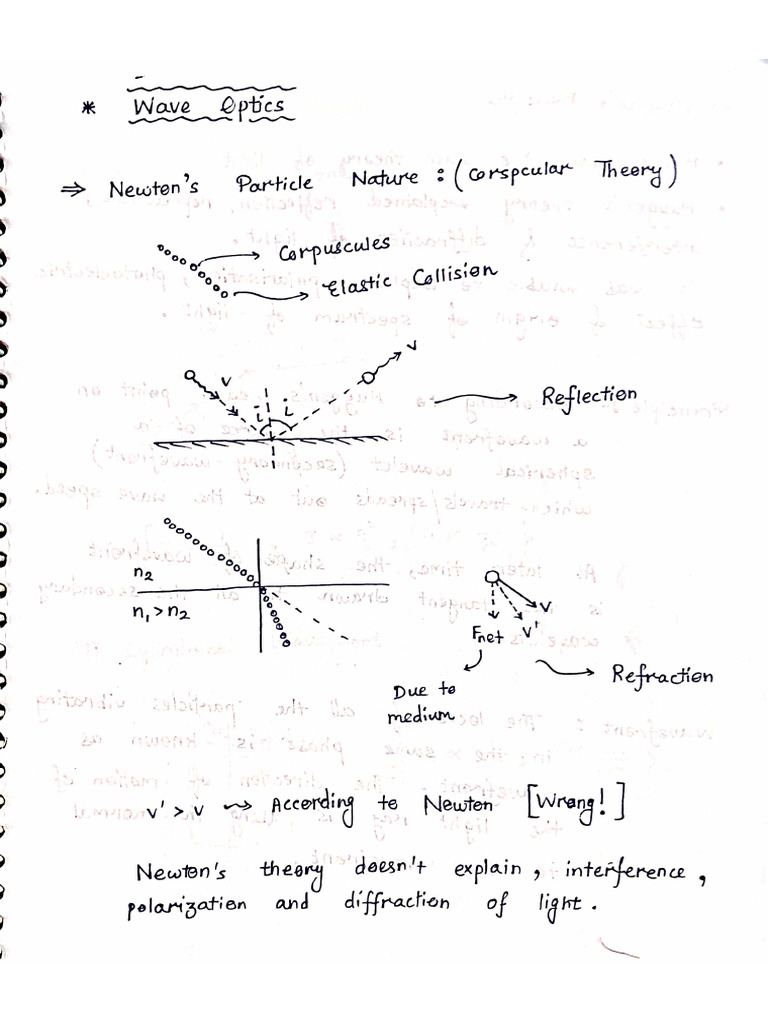 * Wave Optics
⇒ Newton's Particle Nature : (Corspcular Theory)
Corpuscules
Elastic Collision
v
v
i
i
Reflection
n2
n1 > n2
v
Fnet
v'
Due to
medium
Refraction
v' > v ⇝ According to Newton [Wrong!]
Newton's theory doesn't explain, interference,
polarization and diffraction of light.